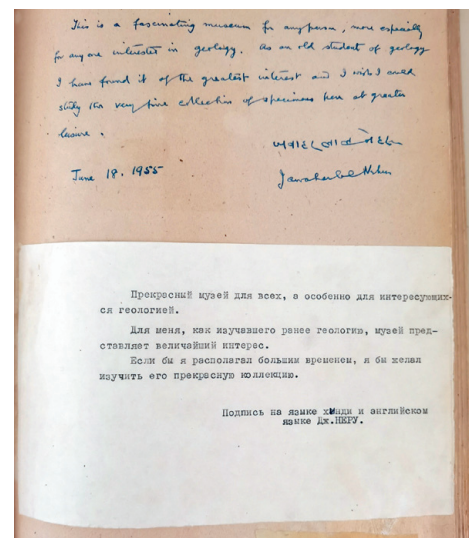 This is a fascinating museum for any person, more especially
for anyone interested in geology. As an old student of geology
I have found it of the greatest interest and I wish I could
study the very fine collection of specimens here at greater
leisure.
जवाहरलाल नेहरू
June 18. 1955
Jawaharlal Nehru
Прекрасный музей для всех, а особенно для интересующих-
ся геологией.
Для меня, как изучавшего ранее геологию, музей пред-
ставляет величайший интерес.
Если бы я располагал большим временем, я бы желал
изучить его прекрасную коллекцию.
Подпись на языке хинди и английском
языке Дж.НЕРУ.